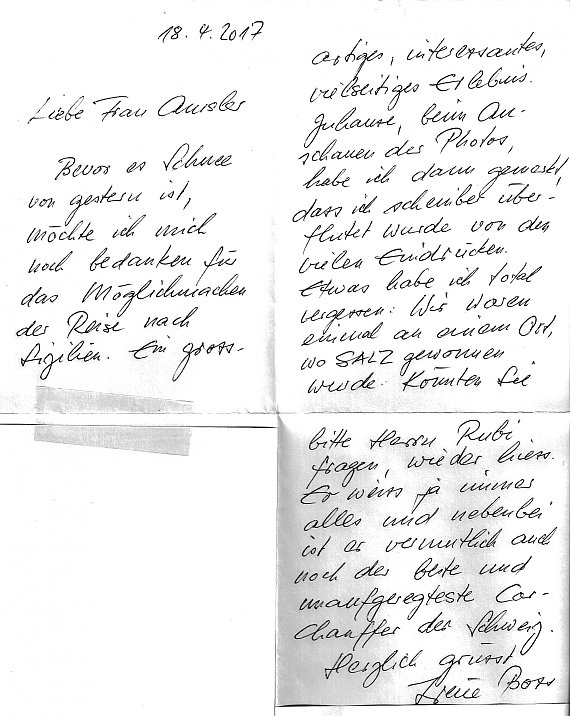 18. 4. 2017
Liebe Frau Amsler
Bevor es Schnee
von gestern ist,
möchte ich mich
noch bedanken für
das Möglichmachen
der Reise nach
Sizilien. Ein gross-
artiges, interessantes,
vielseitiges Erlebnis.
Zuhause, beim An-
schauen der Photos,
habe ich dann gemerkt,
dass ich scheinbar über-
flutet wurde von den
vielen Eindrücken.
Etwas habe ich total
vergessen: Wir waren
einmal an einem Ort,
wo SALZ gewonnen
wurde. Könnten Sie
bitte Herrn Rubi
fragen, wie der hiess.
Er weiss ja immer
alles und nebenbei
ist er vermutlich auch
noch der beste und
unaufgeregteste Car-
Chauffer der Schweiz.
Herzlich grüsst
Irene Boss